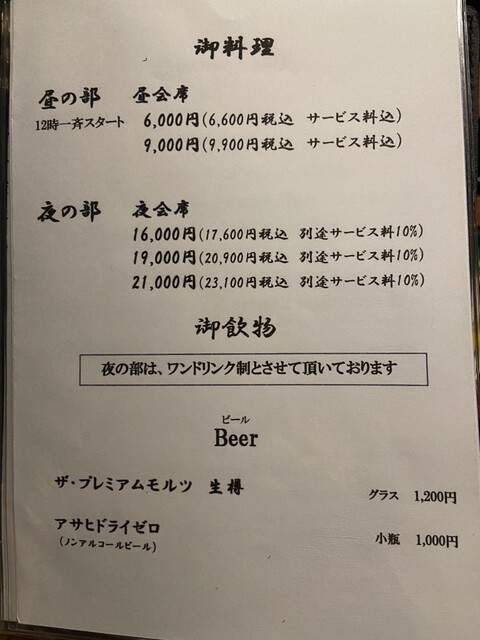 御料理
昼の部 昼会席
12時一斉スタート 6,000円(6,600円税込 サービス料込)
9,000円(9,900円税込 サービス料込)
夜の部 夜会席
16,000円(17,600円税込 別途サービス料10%)
19,000円(20,900円税込 別途サービス料10%)
21,000円(23,100円税込 別途サービス料10%)
御飲物
夜の部は、ワンドリンク制とさせて頂いております
ビール
Beer
ザ・プレミアムモルツ 生樽 グラス 1,200円
アサヒドライゼロ 小瓶 1,000円
(ノンアルコールビール)